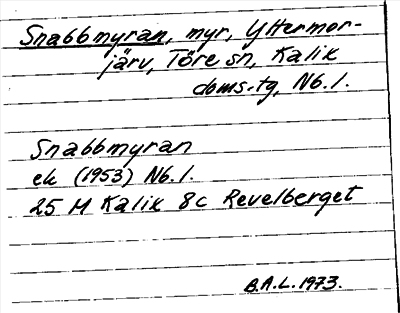 Snabbmyran, myr, Yttermor-
järv, Töre sn, Kalix
doms.tg, Nb.l.
Snabbmyran
ek (1953) Nb.l.
25 M Kalix 8c Revelberget
B.A.L. 1973.